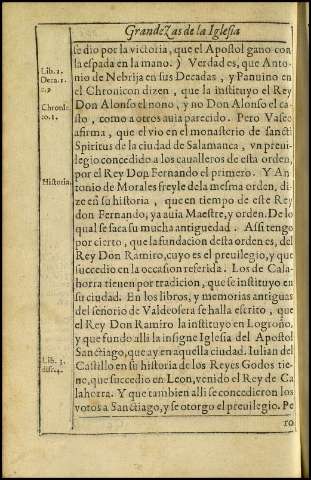 Grandezas de la Iglesia
se dio por la victoria, que el Apostol gano con
la espada en la mano.) Verdad es, que Anto-
nio de Nebrija en sus Decadas, y Panuino en
el Chronicon dizen, que la instituyo el Rey
Don Alonso el nono, y no Don Alonso el ca-
sto, como a otros auia parecido. Pero Vaseo
afirma, que el vio en el monasterio de sancti
Spiritus de la ciudad de Salamanca, vn preui-
legio concedido a los caualleros de esta orden,
por el Rey Don Fernando el primero. Y An
tonio de Morales freyle de la mesma orden, di-
ze en su historia, que en tiempo de este Rey
don Fernando, ya auia Maestre, y orden. De lo
qual se saca su mucha antiguedad. Assi tengo
por cierto, que la fundacion desta orden es, del
Rey Don Ramiro, cuyo es el preuilegio, y que
succedio en la occasion referida. Los de Cala-
horra tienen por tradicion, que se instituyo en
su ciudad. En los libros, y memorias antiguas
del señorio de Valdeosera se halla escrito, que
el Rey Don Ramiro la instituyo en Logroño,
y que fundo alli la insigne Iglesia del Apostol
Sanctiago, que ay en aquella ciudad. Iulian del
Castillo en su historia de los Reyes Godos tie-
ne, que succedio en Leon, venido el Rey de Ca
lahorra. Y que tambien alli se concedieron los
votos a Sanctiago, y se otorgo el preuilegio. Pe
ro
Lib. 2.
Deca. 1.
Chronic
Historia.
Lib. 3.
disc. 4.